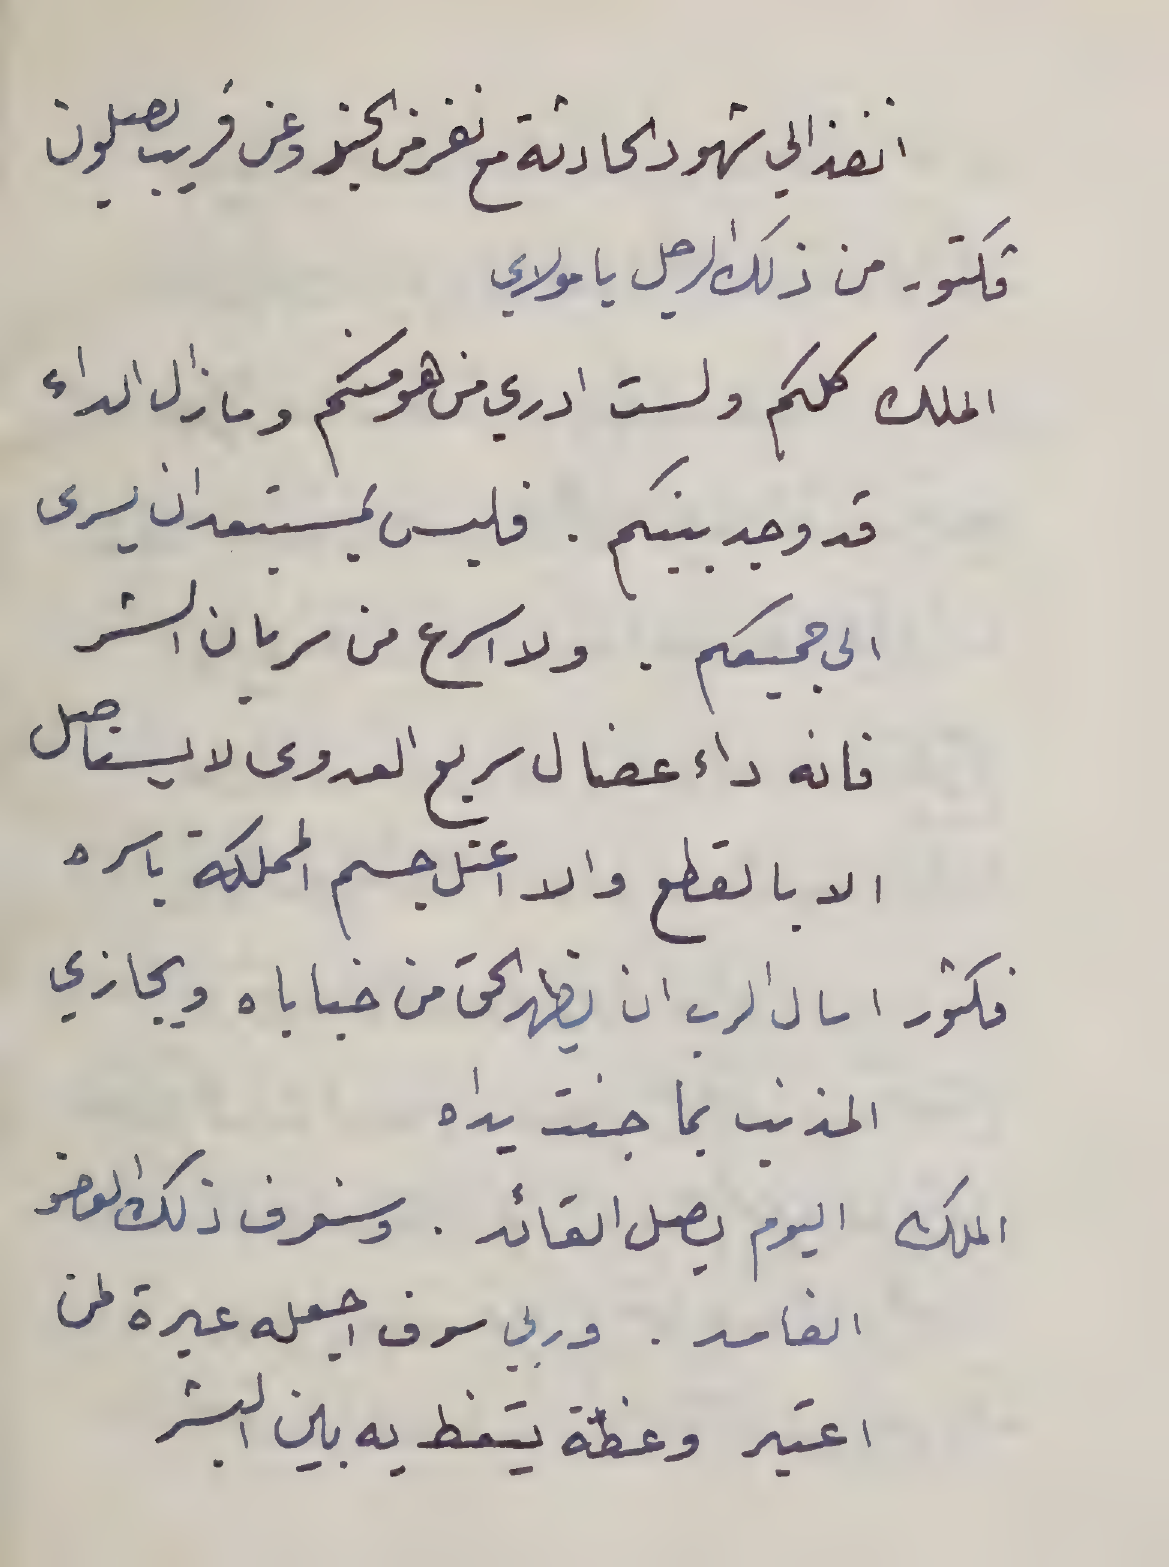 انفذ الي شهود الحادثة مع نفر من الجند وعن قريب يصلون
فكتور من ذلك الرجل يا مولاي
الملك كلكم ولست ادري من هو منكم وما زال الداء
قد وجد بينكم . فليس بمستبعد ان يسرى
الى جميعكم . ولا اسرع من سريان الشر
فانه داء عضال سريع العدوى لا يستاصل
الا بالقطع والا اعتل جسم المملكة باسره
فكتور اسال الرب ان يظهر الحق من خباياه ويجازي
المذنب بما جنت يداه
الملك اليوم يصل القائد . وسنعرف ذلك العضو
الفاسد . وربي سوف اجعله عبرة لمن
اعتبر وعظة يتعظ به بين البشر